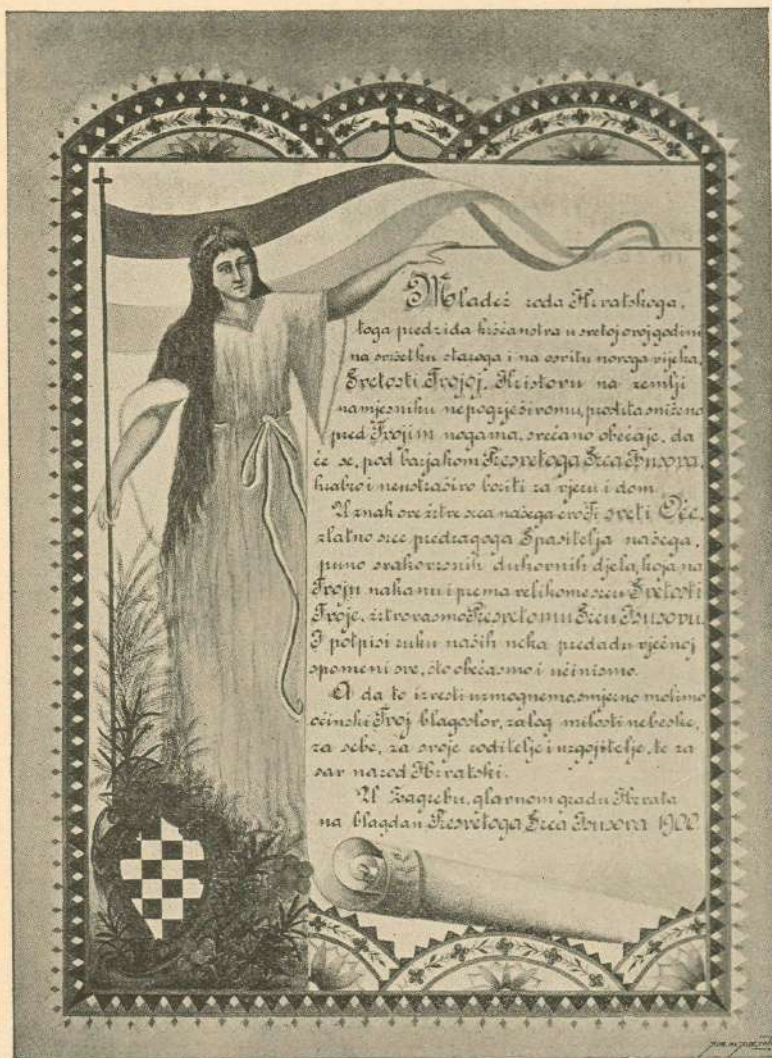 Mladež roda Hrvatskoga,
toga predziđa kršćanstva u svetoj ovoj godini
na svršetku staroga i na osvitu novoga vijeka,
Svetosti Tvojoj, Kristovu na zemlji
namjesniku nepogrješivomu, prostrta sniženo
pred Tvojim nogama, svečano obećaje, da
će se, pod barjakom Presvetoga Srca Isusova,
hrabro i neustrašivo boriti za vjeru i dom.
U znak ove žrtve srca našega evo Ti sveti Oče,
zlatno srce predragoga Spasitelja našega,
puno svakovrsnih duhovnih djela, koja na
Tvoju nakanu i prema velikome srcu Svetosti
Tvoje, žrtvovasmo Presvetomu Srcu Isusovu.
I potpisi ruku naših neka predadu vječnoj
spomeni sve, što obećasmo i učinismo.
A da to izvesti uzmognemo, smjerno molimo
očinski Tvoj blagoslov, zalog milosti nebeske,
za sebe, za svoje roditelje i uzgojitelje, te za
sav narod Hrvatski.
U Zagrebu, glavnom gradu Hrvata
na blagdan Presvetoga Srca Isusova 1900